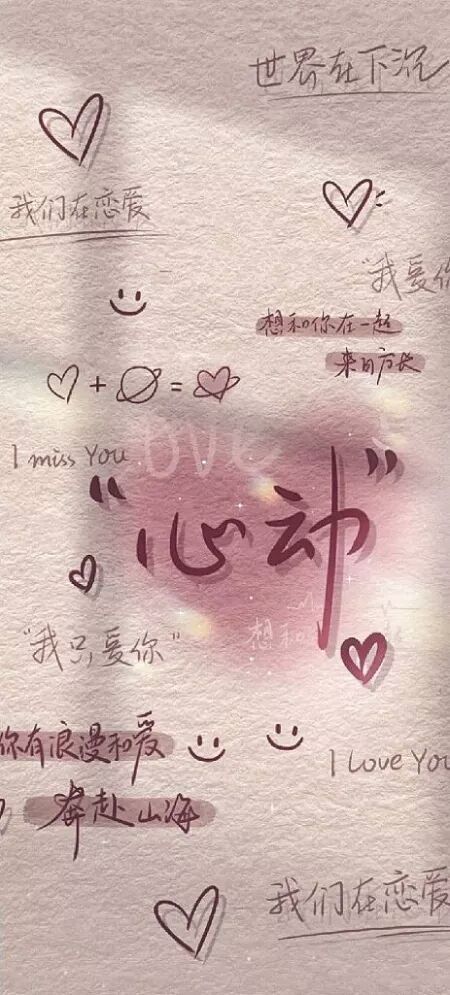 世界在下沉
我们在恋爱
"我爱你
想和你在一起
来日方长
I miss You
love
"心动"
想和
"我只爱你"
你有浪漫和爱
I Love You
奔赴山海
我们在恋爱